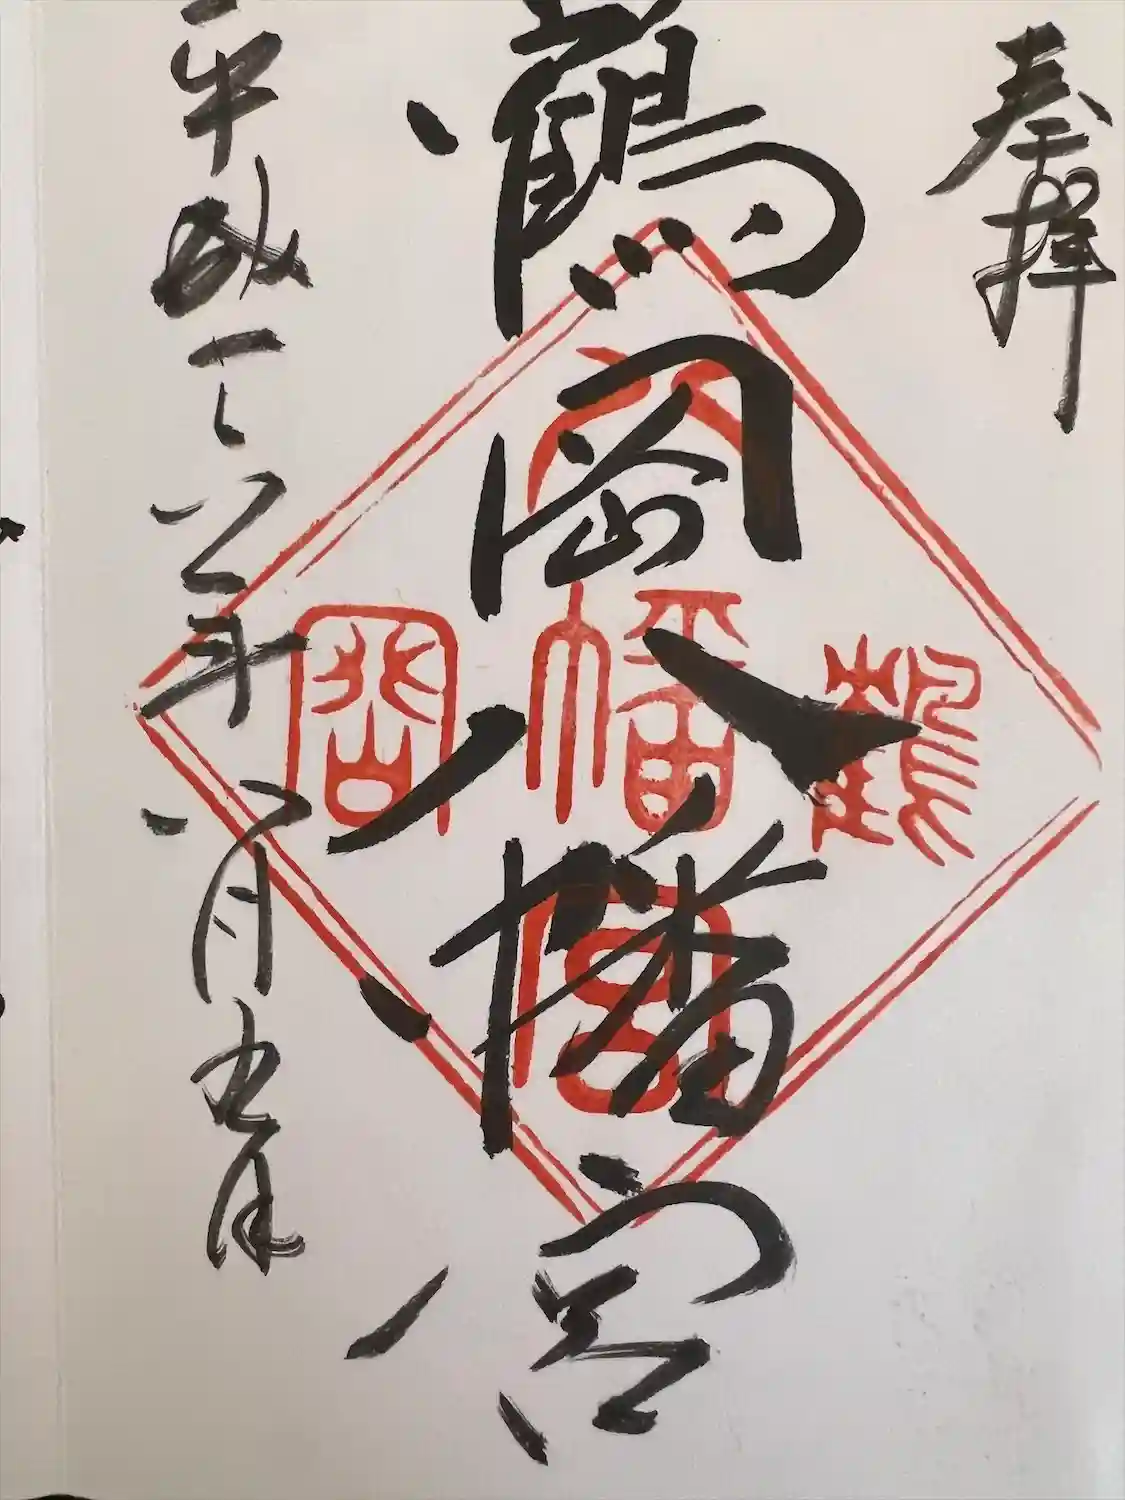 奉拝
鶴岡八幡宮
鶴岡八幡宮
平成十八年八月五日